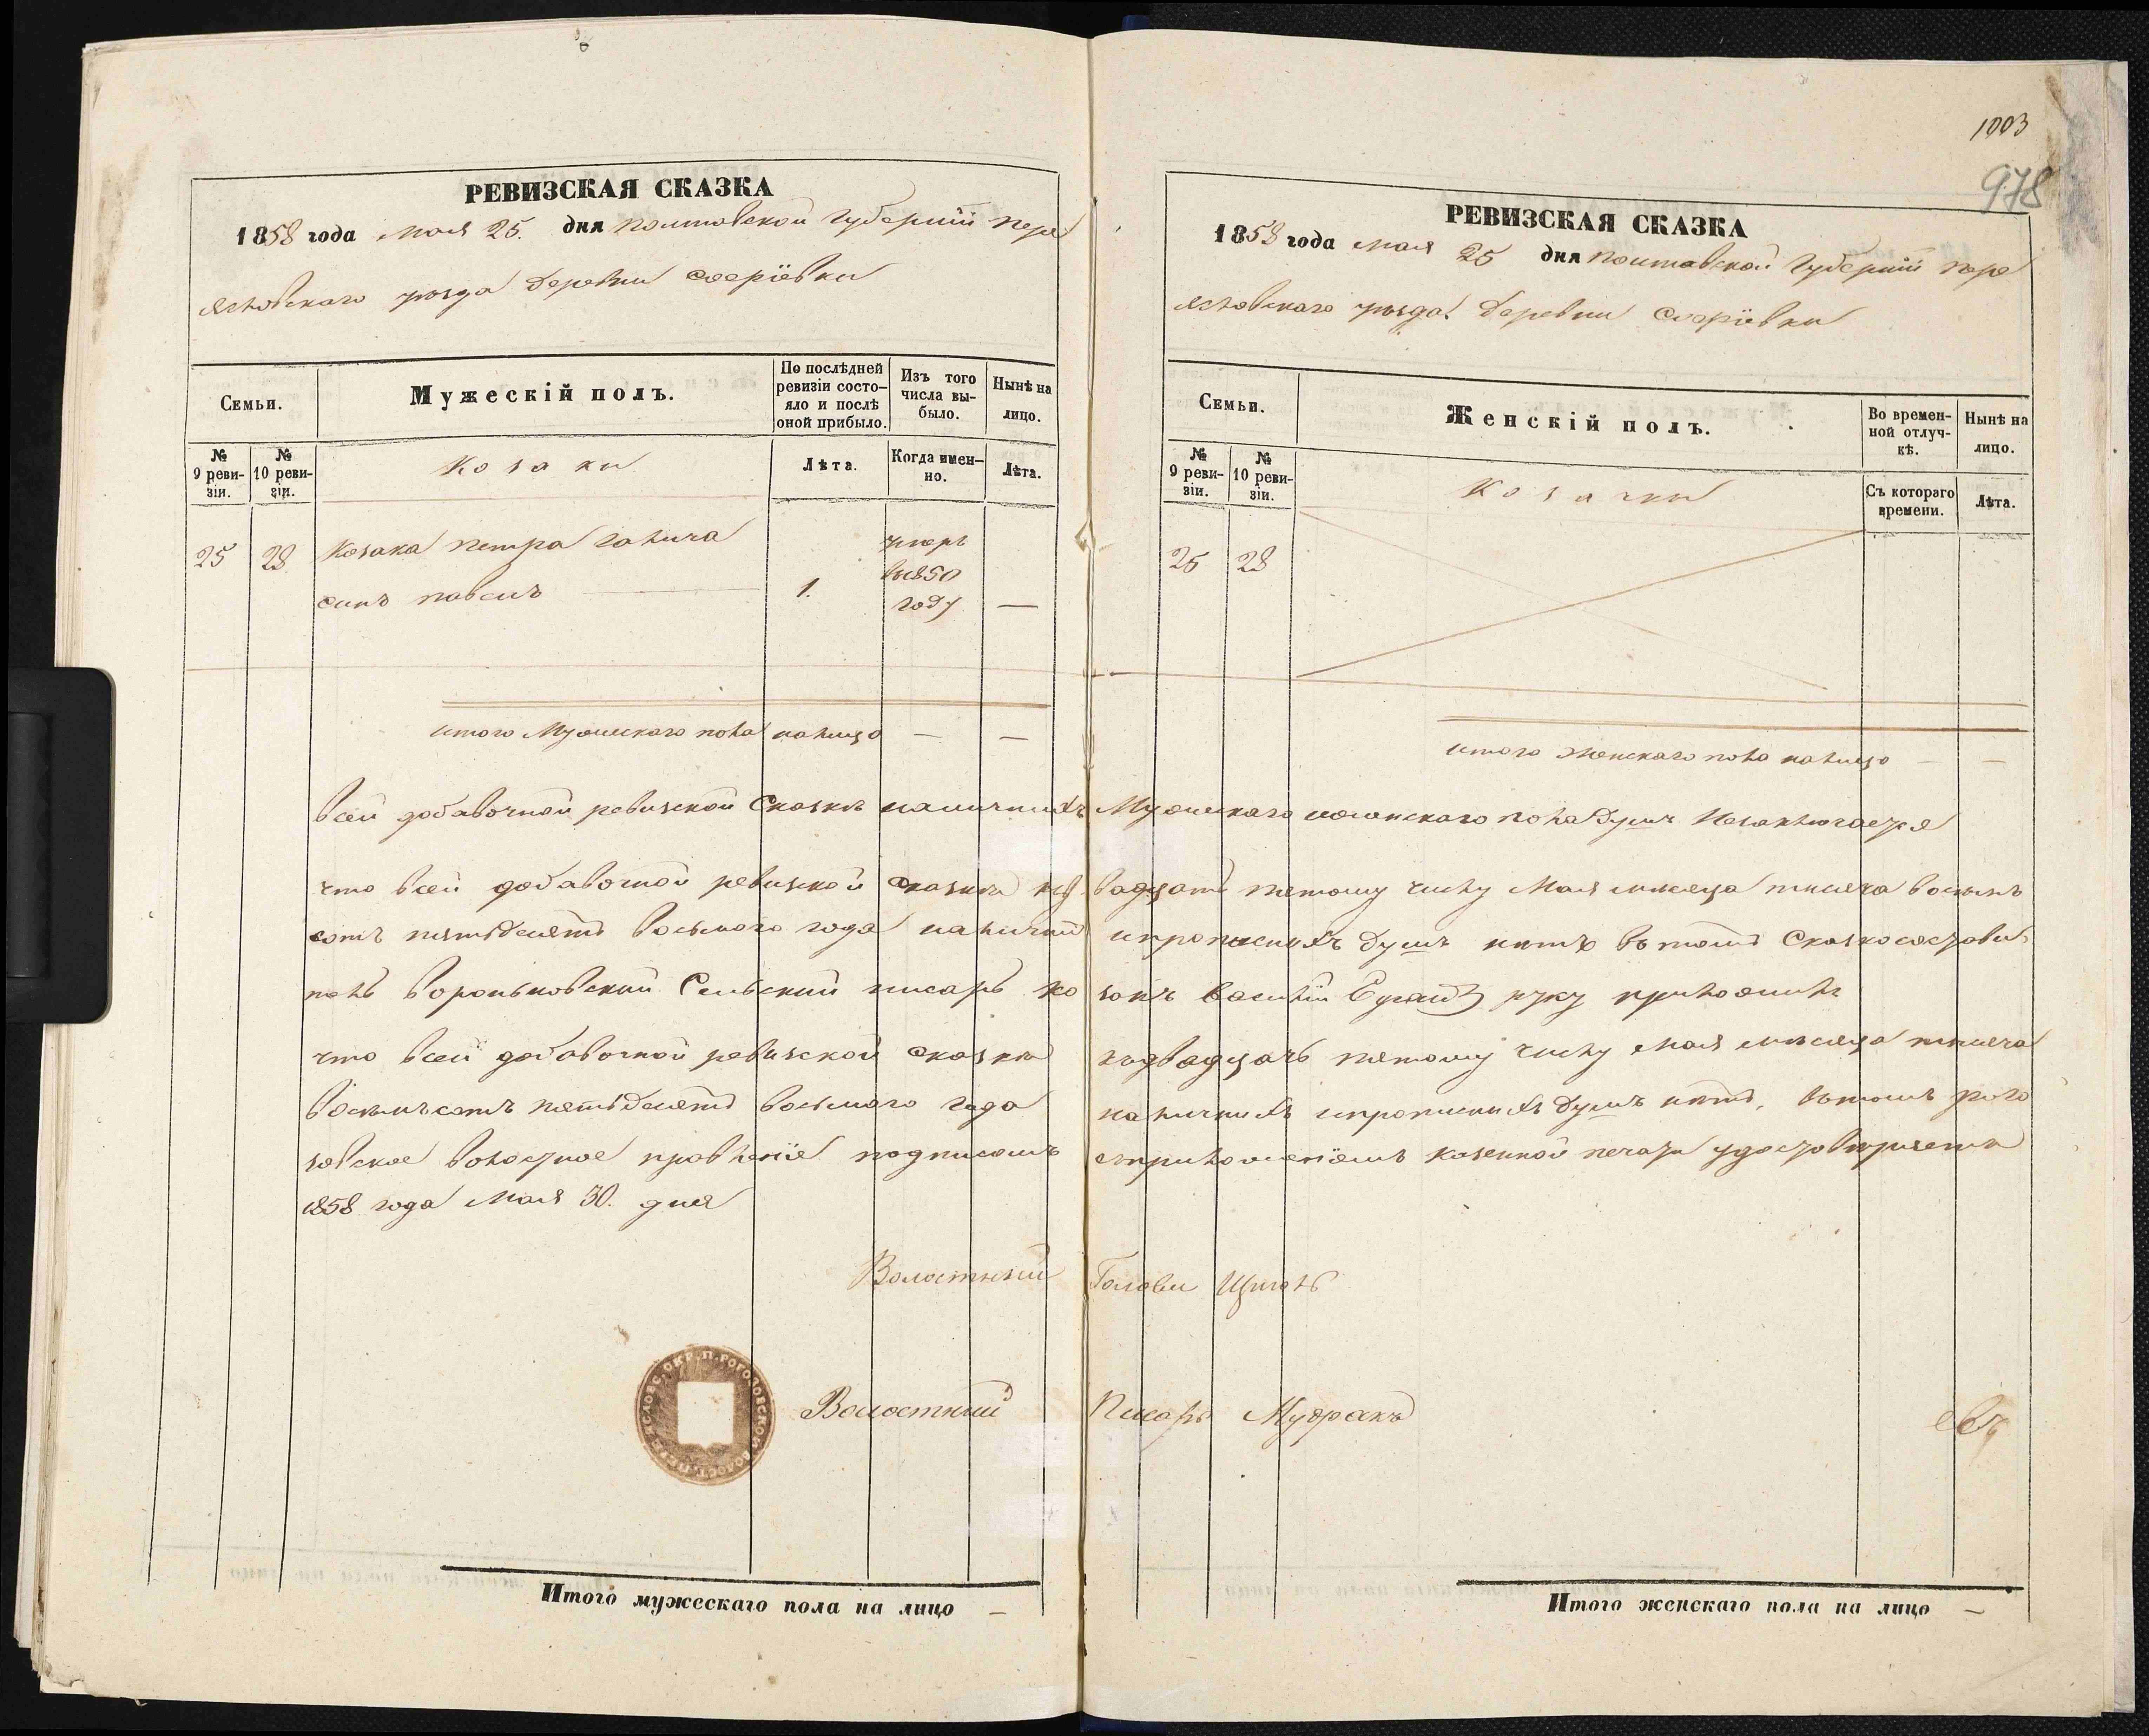 1003
978
РЕВИЗСКАЯ СКАЗКА
1858 года мая 25. дня полтавской Губерніи пере
яславскаго уѣзда деревни
Семьи.
Мужескій полъ.
По послѣдней ревизіи состо-яло и послѣ оной прибыло.
Изъ того числа вы-было.
Нынѣ на лицо.
№ 9 реви-зіи.
№ 10 реви-зіи.
Козаки
Лѣта.
Когда имен-но.
Лѣта.
25 28 Козака петра
сынъ павелъ 1.
умеръ
въ 1850
году —
итого Мужескаго пола налицо — —
РЕВИЗСКАЯ СКАЗКА
1858 года мая 25 дня полтавской Губерніи пере
яславскаго уѣзда деревни
Семьи.
Женскій полъ.
Во времен-ной отлуч-кѣ.
Нынѣ на лицо.
№ 9 реви-зіи.
№ 10 реви-зіи.
Козачки
Съ котораго времени.
Лѣта.
25 28
итого женскаго пола налицо — —
Всей добавочной ревизской Сказкѣ наличныхъ Мужескаго иженскаго пола Душъ Незаключается
что всей добавочной ревизской сказки кид вадцать пятому числу Мая месяца тысяча восемь
сотъ пятьдесятъ восьмого года наличной ипрописныхъ душъ нѣтъ вътомъ Сказкосостави
тель вороньковский Сельский писарь ко закъ василій руку приложилъ
что всей добавочной ревизской сказки кодвадцать пятому числу мая месяца тысяча
восемьсотъ пятьдесятъ восьмого года наличныхъ ипрописныхъ душъ нѣтъ, вътомъ рого
зовское волостное правленіе подписомъ съприложеніемъ казенной печати удостовѣряетъ
1858 года мая 30. дня
Волостный Голова
Волостный Писарь Мудракъ
Итого мужескаго пола на лицо —
Итого женскаго пола на лицо —